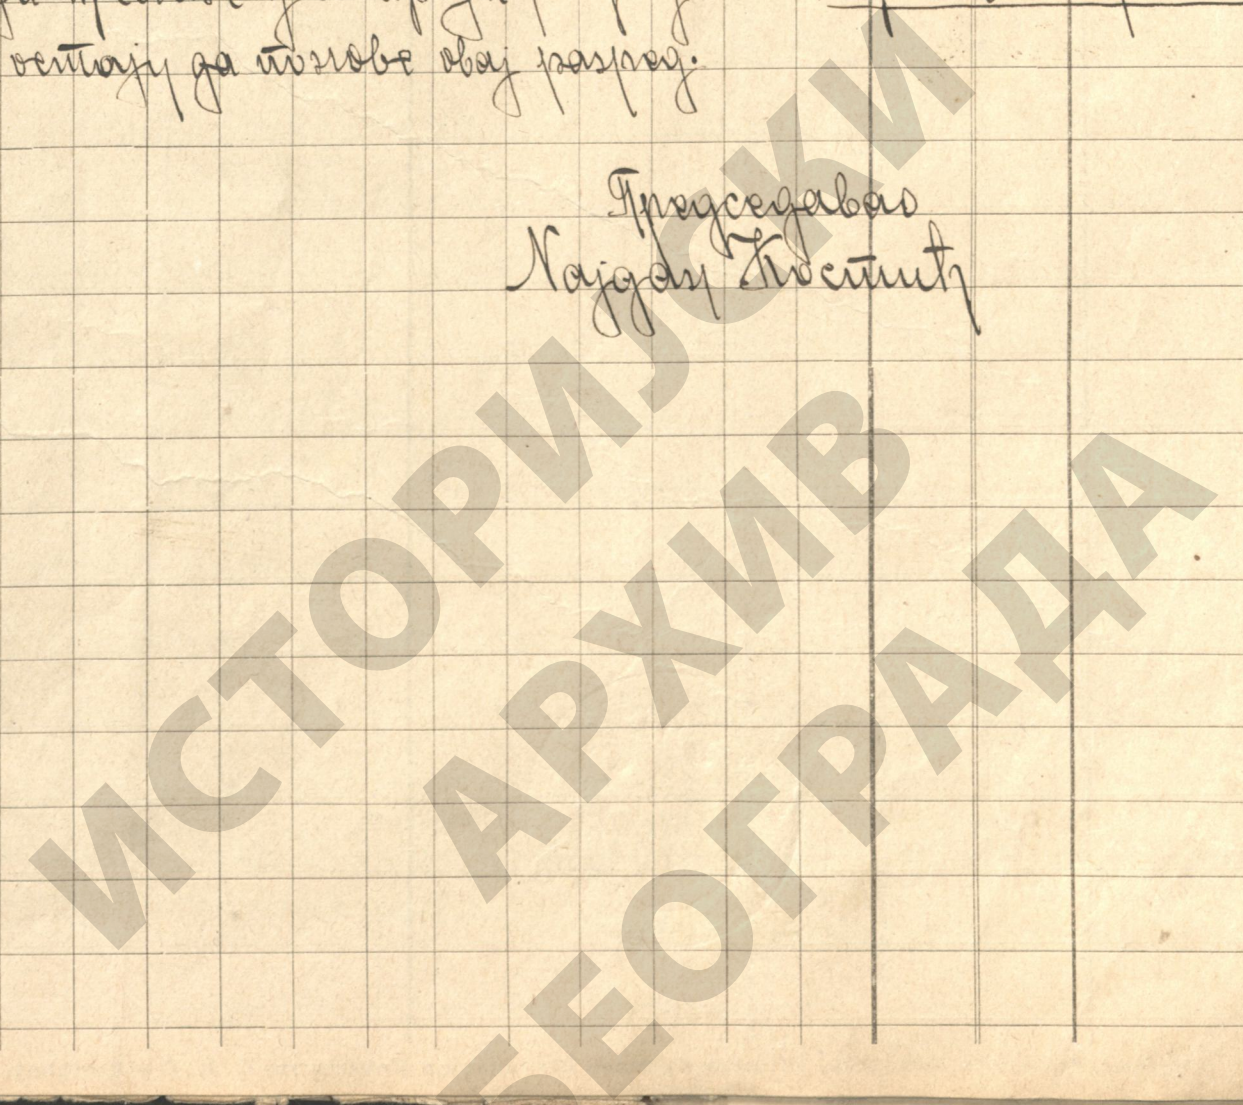 остају да понове овај разред.
Председавао
Најдан Костић
ИСТОРИЈСКИ
АРХИВ
БЕОГРАДА